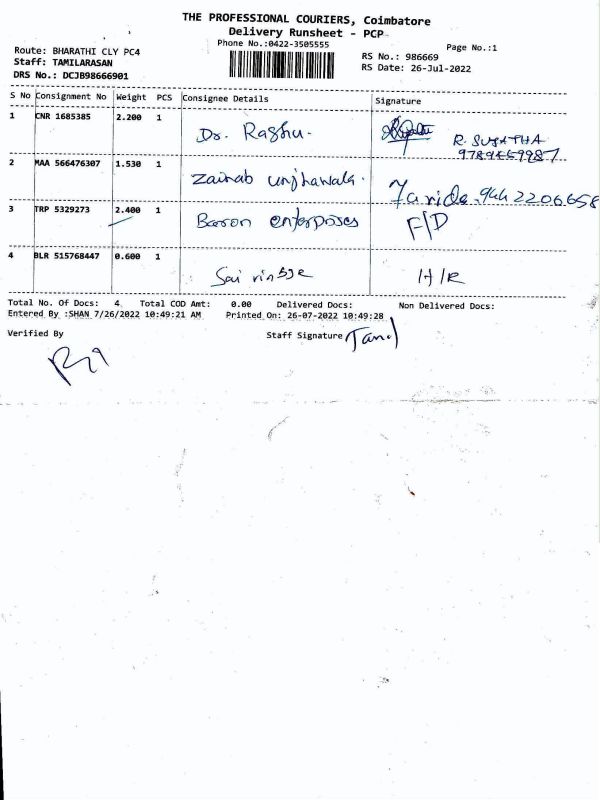 THE PROFESSIONAL COURIERS, Coimbatore
Delivery Runsheet - PCP
Phone No.:0422-3505555
Page No.:1
Route: BHARATHI CLY PC4
RS No.: 986669
Staff: TAMILARASAN
RS Date: 26-Jul-2022
DRS No.: DCJB98666901
S No Consignment No Weight PCS Consignee Details Signature
1 CNR 1685385 2.200 1 Dr. Raghu. R. SUJATHA
2 MAA 566476307 1.530 1 Zainab unjhawala. Farida. 9442206658
3 TRP 5329273 2.400 1 Baron enterprises F/D
4 BLR 515768447 0.600 1 Sai H/R
Total No. Of Docs: 4 Total COD Amt: 0.00 Delivered Docs: Non Delivered Docs:
Entered By :SHAN 7/26/2022 10:49:21 AM Printed On: 26-07-2022 10:49:28
Verified By Staff Signature